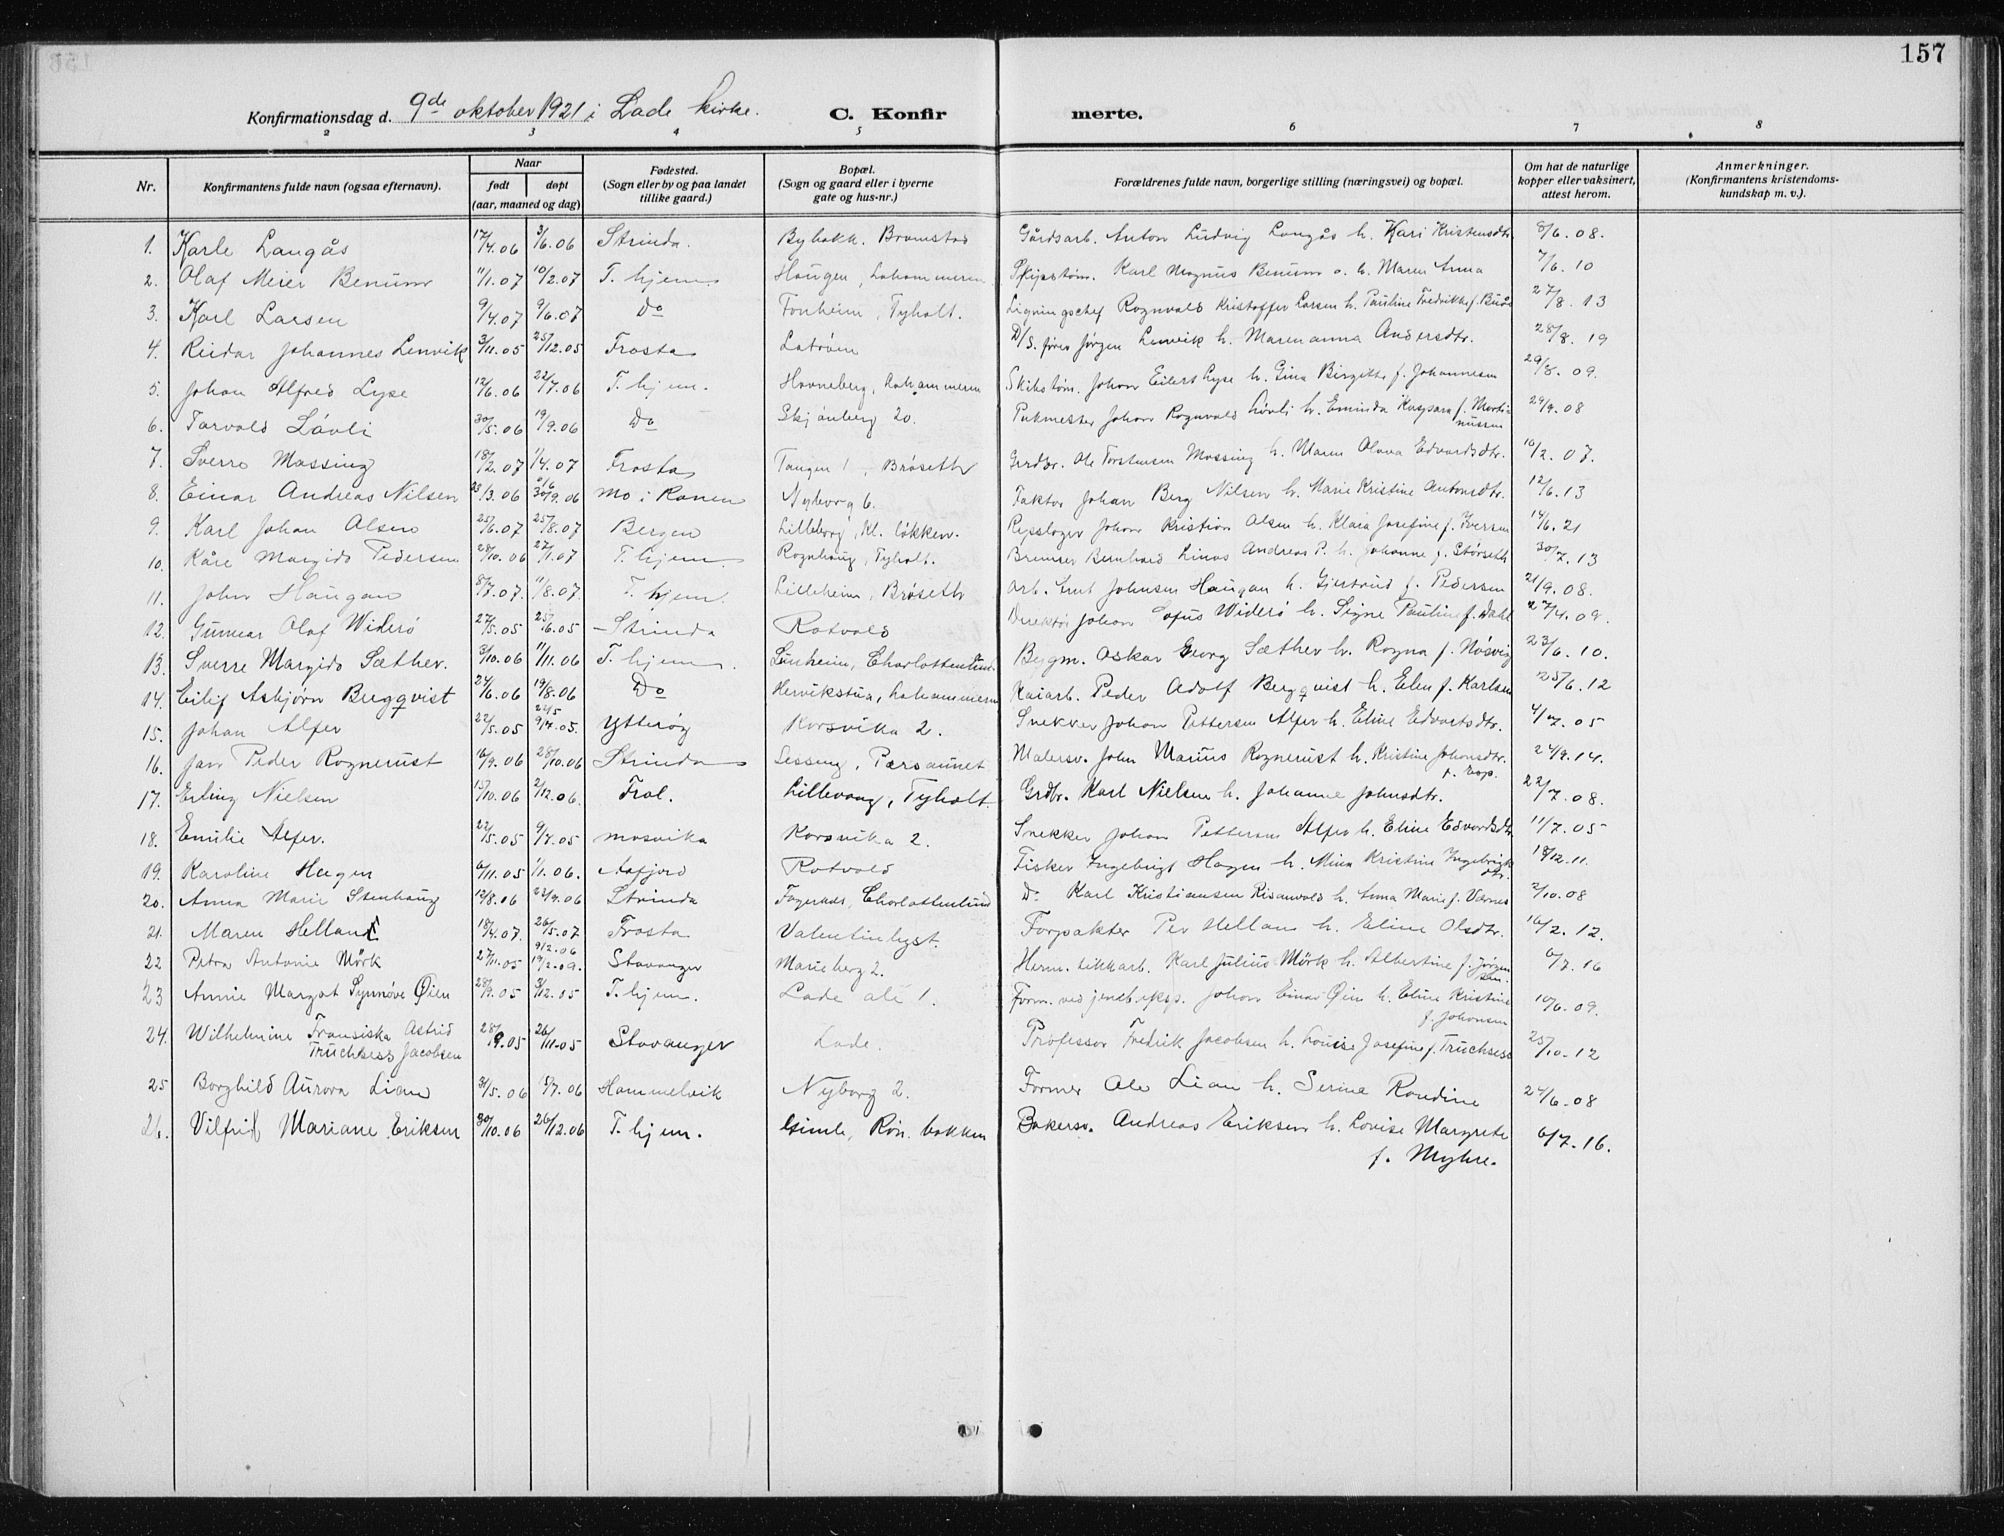 157
Konfirmationsdag d. 9de oktober 1921 i Lade kirke. C. Konfirmerte.
2 3 4 5 6 7 8
Nr. Konfirmantens fulde navn (ogsaa efternavn). Naar født døpt (aar, maaned og dag) Fødested. (Sogn eller by og paa landet tillike gaard.) Bopæl. (Sogn og gaard eller i byerne gate og hus-nr.) Forældrenes fulde navn, borgerlige stilling (næringsvei) og bopæl. Om hat de naturlige kopper eller vaksinert, attest herom. Anmerkninger. (Konfirmantens kristendomskundskap m. v.).
1. Karle Langås 17/4.06 3/6.06 Strinda. Bybakk. Bromstad Gårdsarb. Anton Ludvig Langås h. Kari Kristensdtr. 8/6.08.
2. Olaf Meier Benum 11/1.07 10/2.07 T.hjem Haugen, Ladehammeren Skipstøm. Karl Magnus Benum o. h. Maren Anna 7/6.10
3. Karl Larsen 9/4.07 9/6.07 Do Fonheim, Tyholt. Ligningschef Rognvald Kristoffer Larsen h. Pauline Fredrikke f. Buås 27/8.13
4. Reidar Johannes Lenvik 3/11.05 25/12.05 Frosta Ladröen D/S. fører Jørgen Lenvik h. Marenanna Andersdtr. 28/8.19
5. Johan Alfred Lyse 12/6.06 22/7.06 T.hjem. Havneberg, Ladehammeren Skibstøm. Johan Eilert Lyse h. Gina Birgitte f. Johannesen 29/8.09.
6. Torvald Lövli 30/5.06 19/9.06 Do Skjånberg 20. Pukmester Johan Rognvald Lövli h. Eminda Kaspara f. Martinussen 29/9.08
7. Sverre Massing 18/2.07 1/4.07 Frosta Tangen 1, Bröseth Grdbr. Ole Torstensen Massing h. Maren Olava Edvardsdtr. 10/2.07.
8. Einar Andreas Nilsen 23/3.06 30/9.06 Mo i Ranen Nyborg 6. Faktor Johan Berg Nilsen h. Marie Kristine Antonsdtr. 12/6.13
9. Karl Johan Olsen 25/6.07 25/8.07 Bergen Lilleborg, Kl. Løkken. Repslager Johan Kristian Olsen h. Klara Josefine f. Iversen 14/6.21
10. Kåre Margido Pedersen 28/10.06 27/1.07 T.hjem. Rognhaug, Tyholt. Bremser Bernhard Linas Andreas P. h. Johanne f. Störseth 30/7.13
11. John Haugan 8/7.07. 11/8.07. T.hjem. Lilleheim, Bröseth Arb. Arnt Johnsen Haugan h. Gjertrud f. Pedersen 21/9.08.
12. Gunnar Olaf Widerö 27/5.05 25/6.05 Strinda Rotvold Direktör Johan Sofus Widerö h. Signe Pauline f. Dahl 27/4.09.
13. Sverre Margido Sæther. 3/10.06 11/11.06 T.hjem. Lunheim, Charlottenlund. Bygm. Oskar Georg Sæther h. Ragna f. Näsvig 23/6.10.
14. Eilif Asbjörn Bergqvist 24/6.06 19/8.06 Do Hervikstua, Ladehammeren Kaiarb. Peder Adolf Bergqvist h. Elen f. Karlsen 25/6.12
15. Johan Alfer 22/5.05 9/7.05. Ytteröy Korsvika 2. Snekker Johan Pettersen Alfer h. Eline Edvartsdtr. 4/7.05
16. Jan Peder Rognerust 16/9.06 28/10.06 Strinda Lessing, Persaunet Malersv. John Marius Rognerust h. Kristine Johansdtr. 24/9.14.
17. Erling Nielsen 15/10.06 2/12.06. Frol. Lillevang, Tyholt Grdbr. Karl Nielsen h. Johanne Johnsdtr. 22/7.08.
18. Emilie Alfer. 22/5.05 9/7.05 Mosvika Korsvika 2. Snekker Johan Pettersen Alfer h. Eline Edvardsdtr. 11/7.05
19. Karoline Hagen 6/11.05 1/1.06. Aafjord Rotvold Fisker Ingebrigt Hagen h. Mina Kristine Ingebrigtsdtr. 18/12.11.
20. Anna Marie Stenhaug 12/8.06 23/9.06 Strinda Fagerås, Charlottenlund Do Karl Kristiansen Risanvold h. Anna Marie f. Værnes 2/10.08
21. Maren Helland 18/4.07. 26/5.07 Frosta Valentinlyst. Forpakter Per Helland h. Eline Olsdtr. 16/2.12.
22 Petra Antonie Mörk 27/11.05 9/2.06 19/2.09. Stavanger Marieberg 2. Herm. tikkarb. Karl Julius Mörk h. Albertine f. Jørgensen 6/7.16
23 Annie Margot Synnöve Öien 28/9.05 3/12.05 T.hjem. Lade alé 1. Form. ved jernb.eksp. Johan Einar Öien h. Eline Kristine f. Johansen 10/6.09.
24. Wilhelmine Fransiska Astrid Truchsess Jacobsen 28/9.05 26/11.05 Stavanger Lade. Professor Fredrik Jacobsen h. Louise Josefine f. Truchsess 25/10.12
25 Borghild Aurora Lian 31/5.06 15/7.06 Hommelvik Nyborg 2. Former Ole Lian h. Serine Rondine 24/6.08
26. Vilfrid Mariane Eriksen 30/10.06 26/12.06 T.hjem. Gimle, Rön. bakken Bakersv. Andreas Eriksen h. Lovise Margrete f. Myhre. 6/7.16.